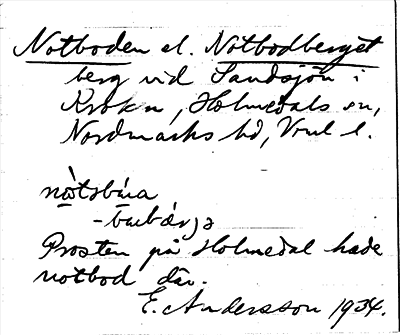 Notboden el. Notbodberget
berg vid Sandsjön i
Kroken, Holmedals sn,
Nordmarks hd, Vrml l.
nòtsbúa
-bubærjə
Prosten på Holmedal hade
notbod där.
E. Andersson 1934.